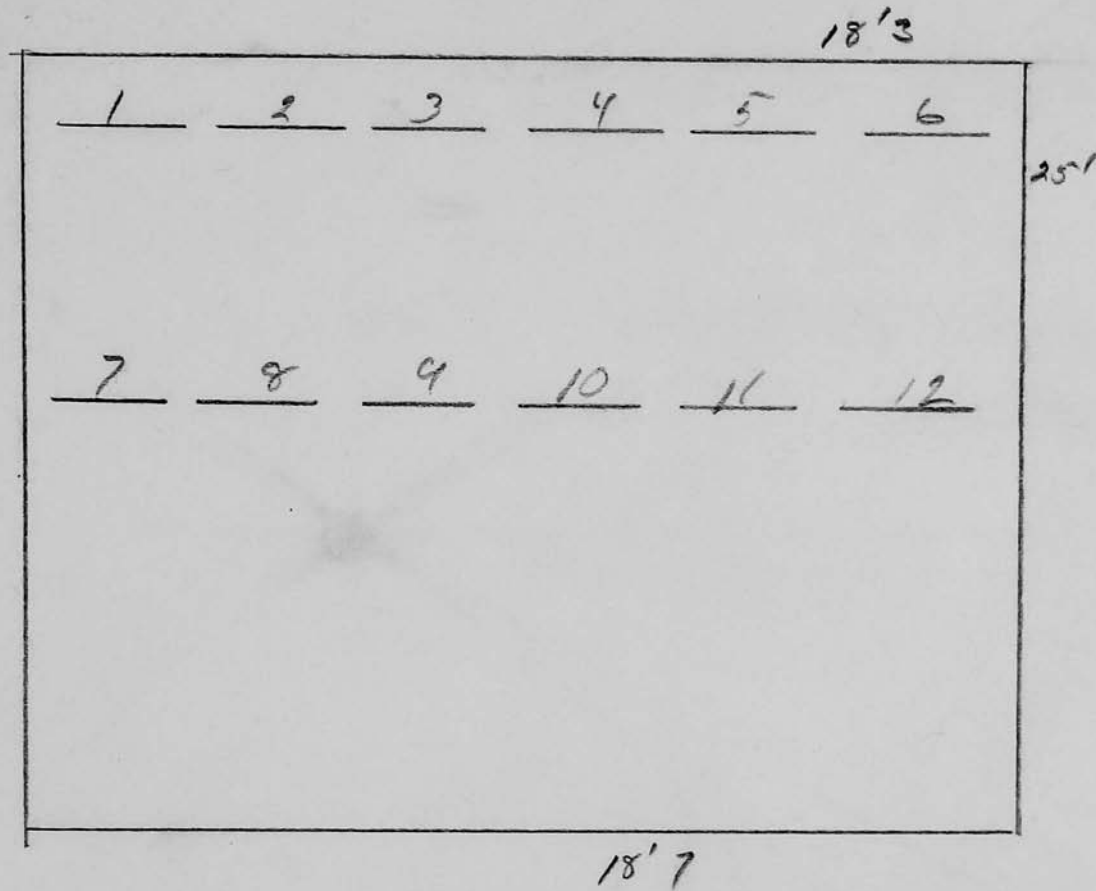 18'3
1 2 3 4 5 6
25'
7 8 9 10 11 12
18'7